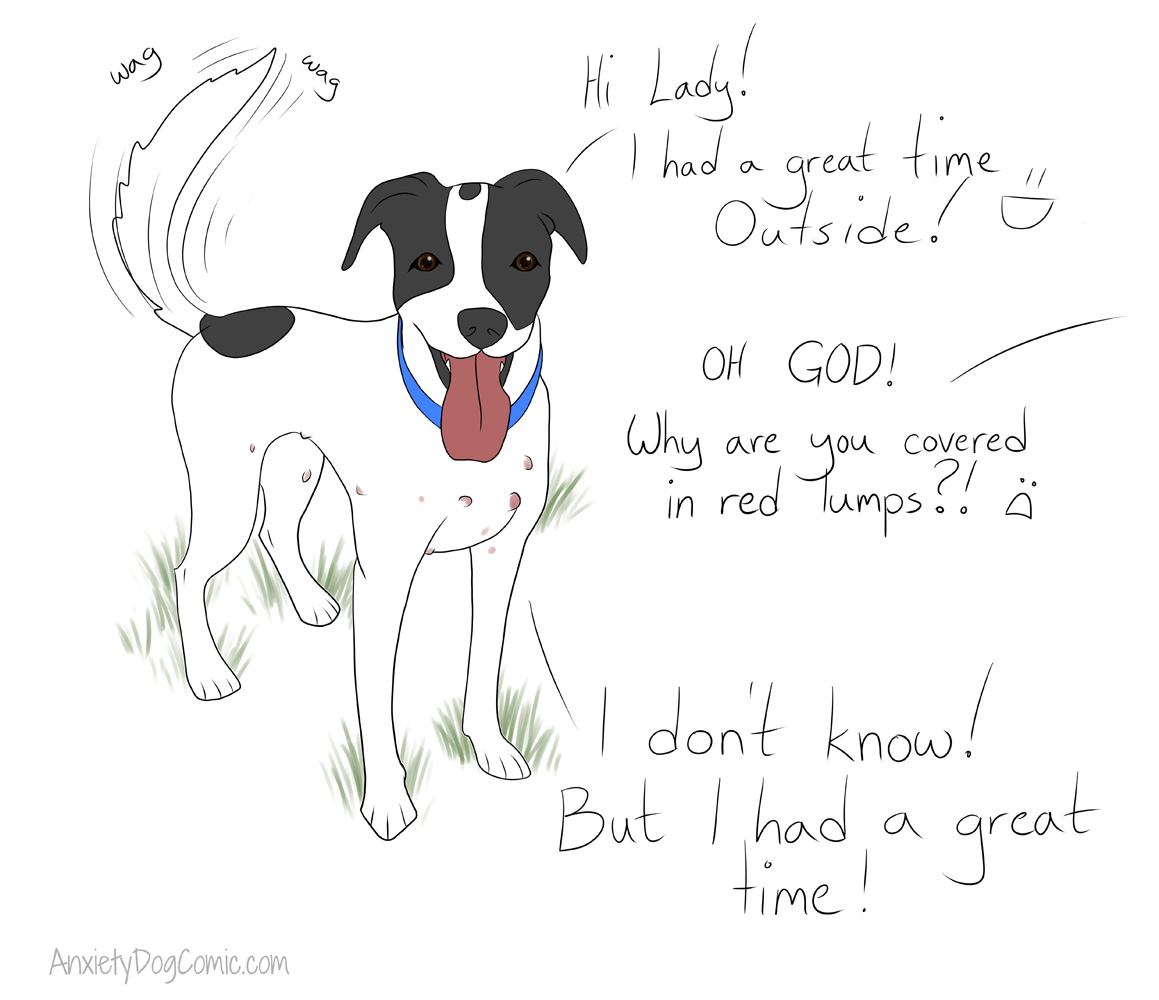 wag
wag
Hi Lady!
I had a great time
Outside!
OH GOD!
Why are you covered
in red lumps?!
I don't know!
But I had a great
time!
AnxietyDogComic.com